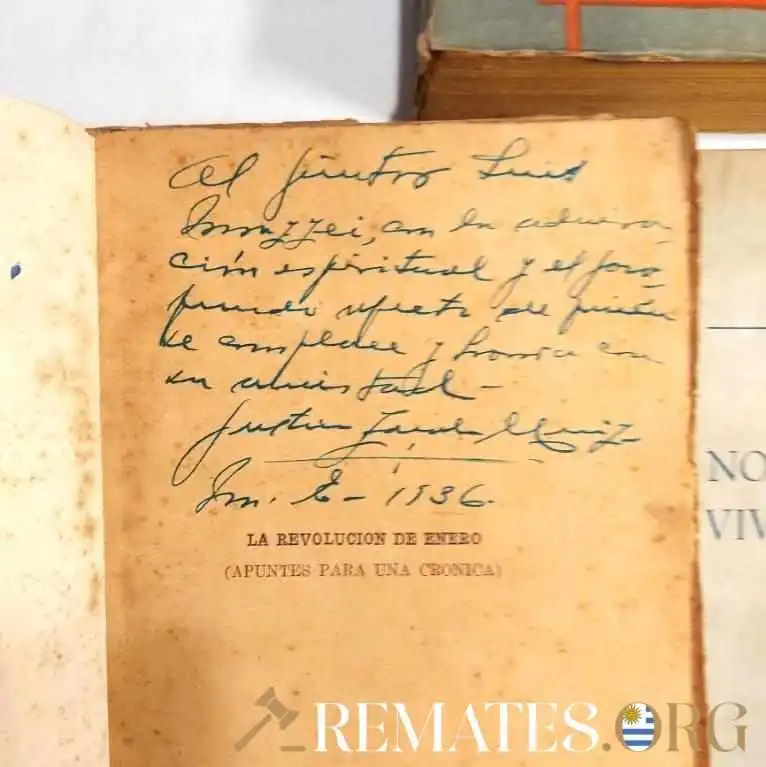 Al pintor Luis
Mazzei, con la admira-
ción espiritual y el pro-
fundo afecto de quien
se complace y honra con
su amistad-
Justino Zavala Muniz
1936.
LA REVOLUCION DE ENERO
(APUNTES PARA UNA CRONICA)
NO
VIV
REMATES.ORG